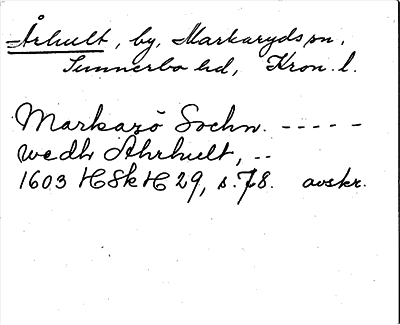 Århult, by, Markaryds sn,
Sunnerbo hd, Kron. l.
Markasö Sochn. -----
wedh Ahrhult, --
1603 HSkH 29, s. 78. avskr.